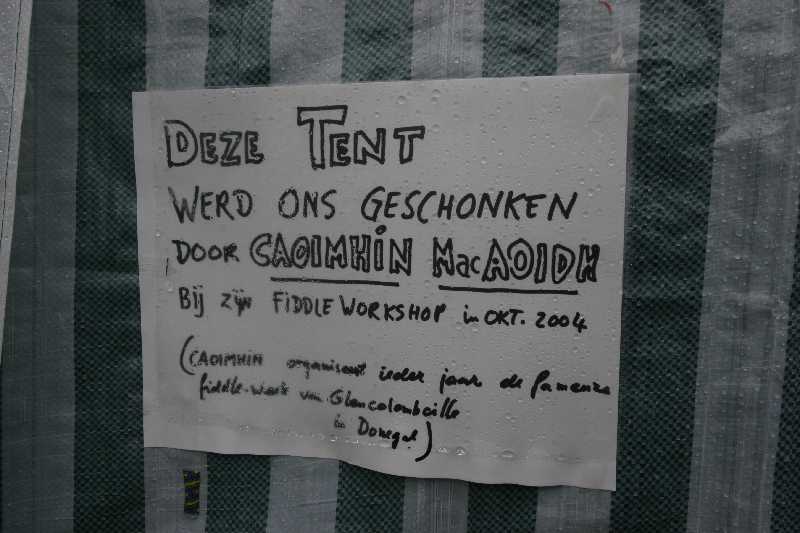 DEZE TENT
WERD ONS GESCHONKEN
DOOR CAOIMHIN MacAOIDH
Bij zijn FIDDLE WORKSHOP in OKT. 2004
(CAOIMHIN organiseert ieder jaar de fameuze
fiddle-week van Glencolumbcille
in Donegal)